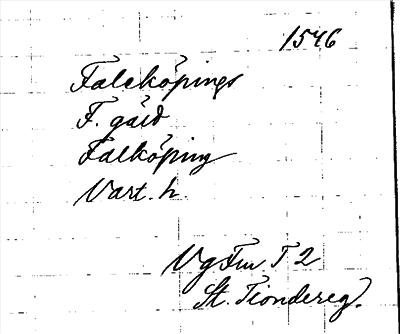 1546
Faleköpings
F. gäld
Falköping
Vart. h.
Vg Fur T 2
St. Tiondereg.